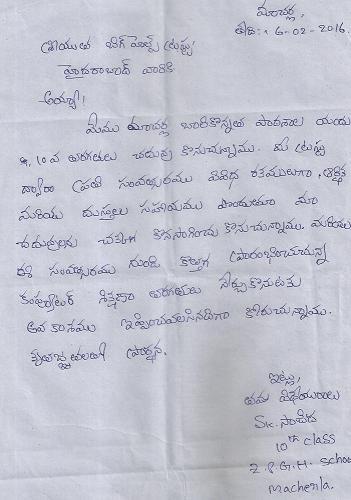 మాచర్ల,
తేది: 16-02-2016.
శ్రీయుత బిగ్ హెల్ప్ ట్రస్టు,
హైదరాబాద్ వారికి
అయ్యా!
మేము మాచర్ల బాలికోన్నత పాఠశాల యందు
9, 10 వ తరగతులు చదువు కొనుచున్నాము. మీ ట్రస్టు
ద్వారా ప్రతి సంవత్సరము వివిధ రకములుగా,
మరియు దుస్తులు సహాయము పొందుతూ మా
చదువులను చక్కగా కొనసాగించు కొనుచున్నాము. మరియు
ఈ సంవత్సరము నుండి కొత్తగ ప్రారంభించుచున్న
కంప్యూటర్ శిక్షణా తరగతులు నేర్చుకొనుటకు
అవకాశము ఇప్పించవలసినదిగా కోరుచున్నాము.
ప్రార్థన.
ఇట్లు,
తమ విధేయురాలు
Sk.
10th class
Z.P.G.H. School
Macherla.